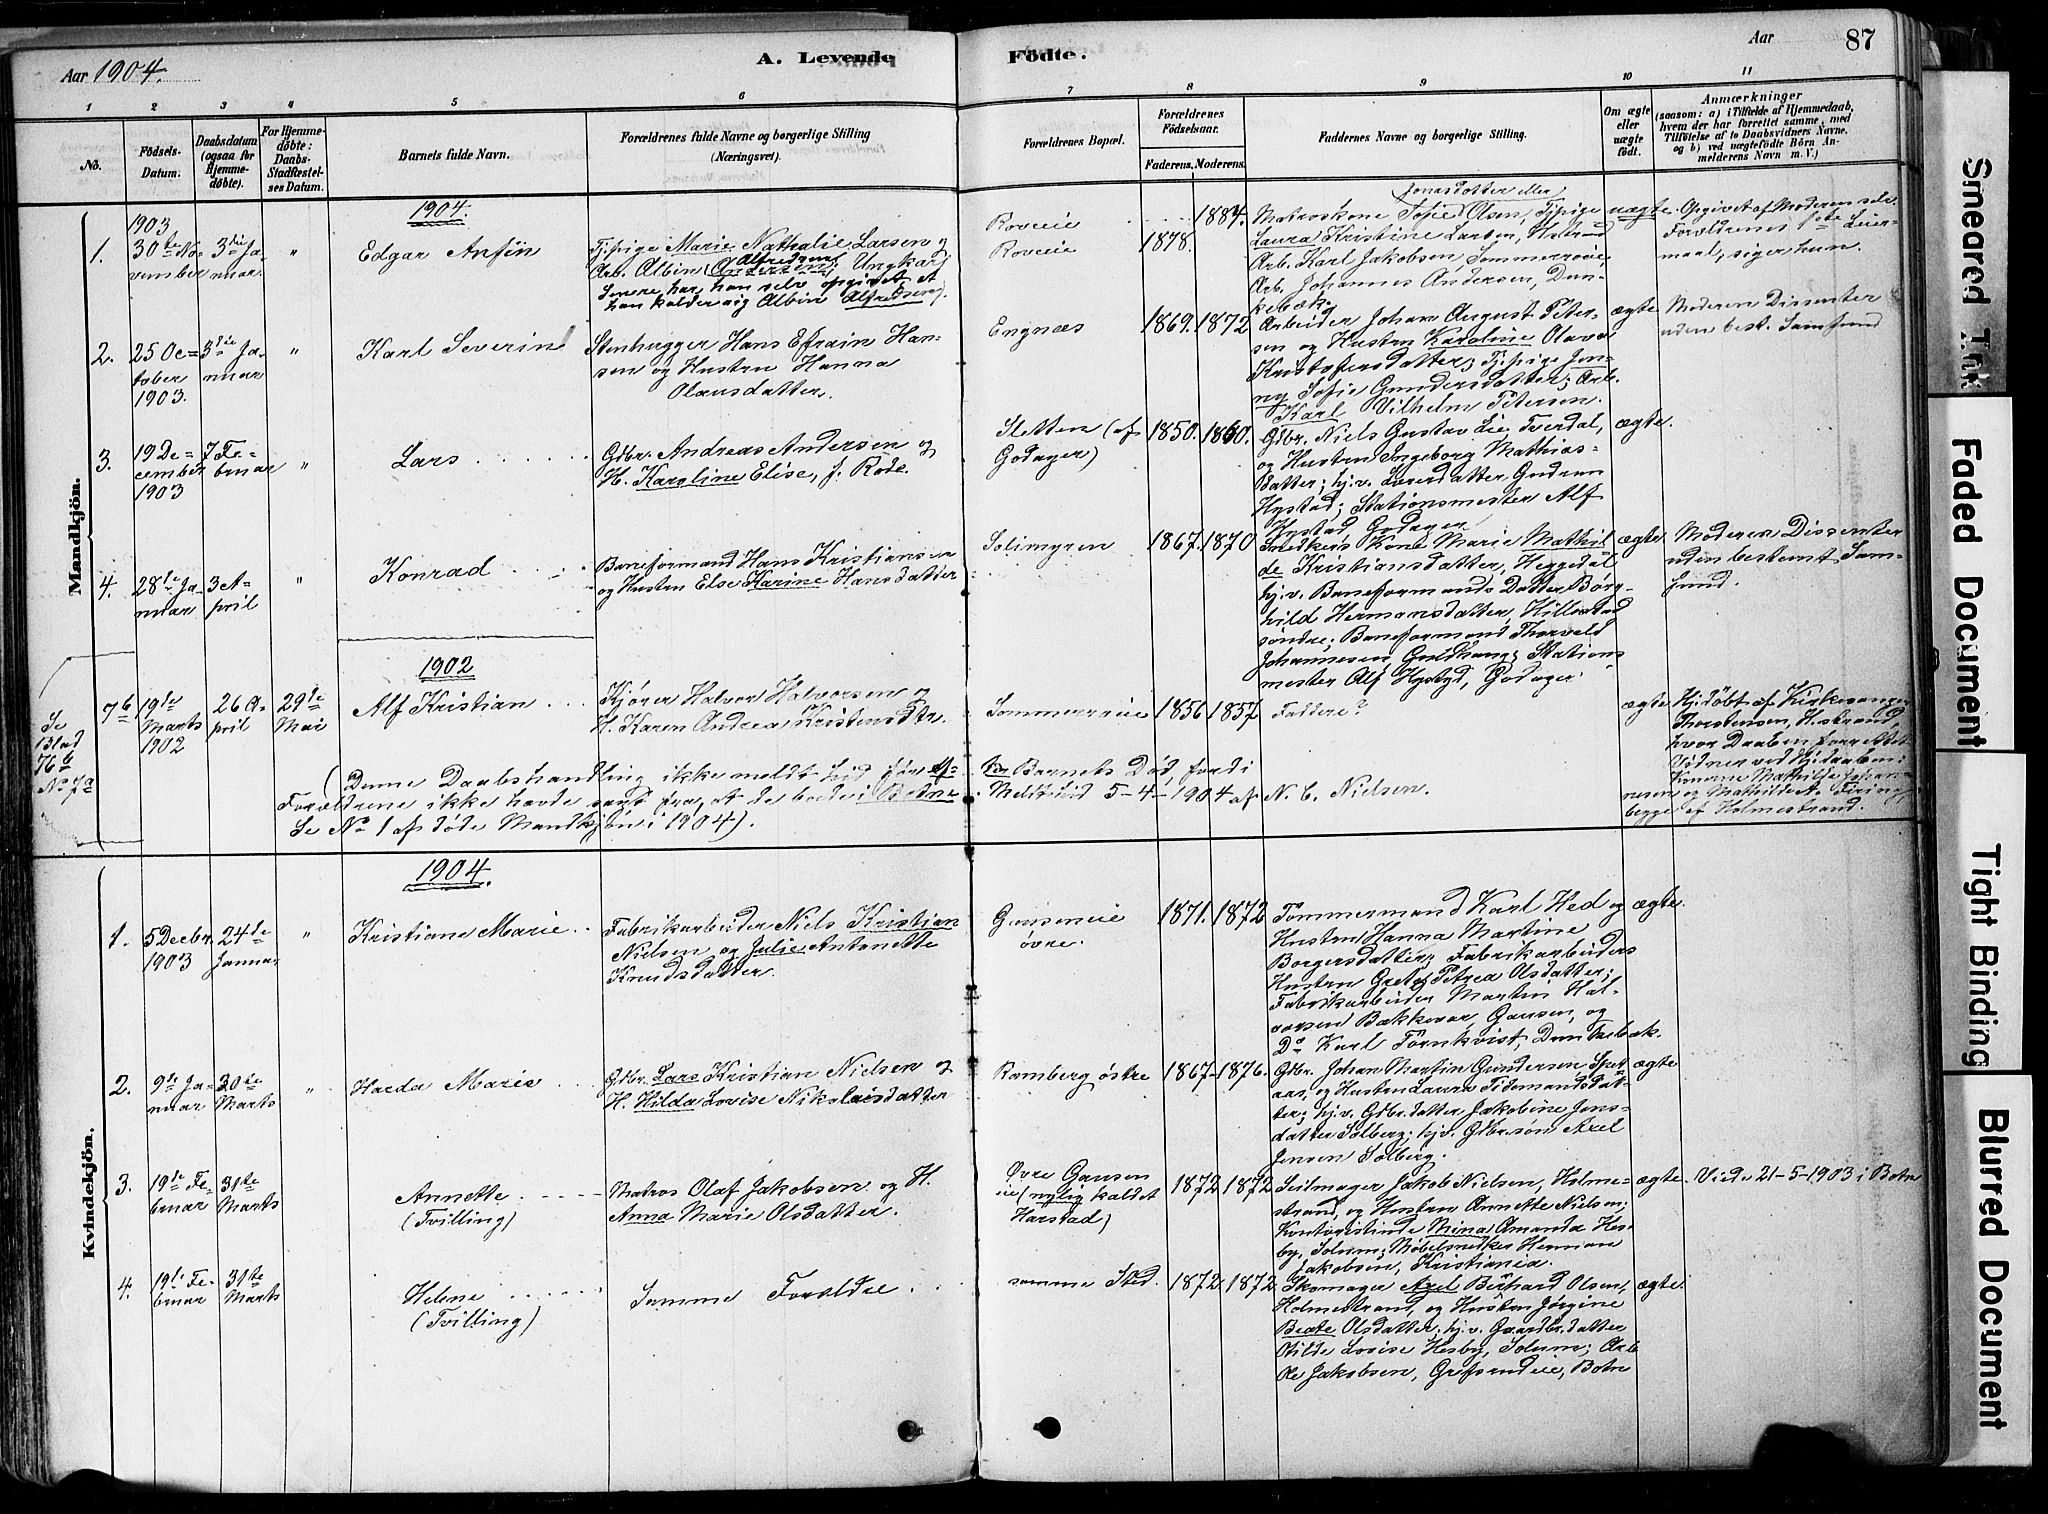 Aar 1904.
A. Levende Födte.
Aar
87
1 2 3 4 5 6 7 8 9 10 11
No.
Födsels-
Datum.
Daabsdatum
(ogsaa for
Hjemme-
døbte).
For Hjemme-
døbte:
Daabs-
Stadfæstel-
ses Datum.
Barnets fulde Navn.
Forældrenes fulde Navne og borgerlige Stilling
(Næringsvei).
Forældrenes Bopæl.
Forældrenes
Födselsaar.
Faderens. Moderens.
Faddernes Navne og borgerlige Stilling.
Om ægte
eller
uægte
födt.
Anmærkninger
(saasom: a) i Tilfælde af Hjemmedaab,
hvem der har forrettet samme, med
Tilföielse af to Daabsvidners Navne,
og b) ved uægtefödte Börn An-
melderens Navn m. V.)
Mandkjön.
1904.
1.
1903
30te No-
vember
3die Ja-
nuar
"
Edgar Anfin
Tjpige Marie Nathalie Larsen og
Arb. Albin (Andersen) Alfredsen, Ungkar
Senere har han selv opgivet, at
han kalder sig Albin Alfredsen).
Roveie
Roveie
1884.
1878.
Jonasdatter eller
Matroskone Sofie Olsen, Tjpige
Laura Kristine Larsen,
Arb. Karl Jakobsen, Sommerroie,
Arb. Johannes Andersen, Dun-
kebæk
uægte.
Opgivet af Moderen selv.
Forældrenes 1ste Leier-
maal, siger hun.
2.
25 Oc-
tober
1903.
3die Ja-
nuar
"
Karl Severin
Stenhugger Hans Efraim Han-
sen og Hustru Hanna
Olausdatter.
Engnæs
1869. 1872
Arbeider Johan August Peter-
sen og Hustru Karoline Olava
Kristofersdatter; Tjpige Jen-
ny Sofie Gundersdatter; Arb.
Karl Vilhelm Petersen.
ægte
Moderen Dissenter
uden best. Samfund
3.
19 De-
cember
1903
7 Fe-
bruar
"
Lars
Gdbr. Andreas Andersen og
H. Karoline Elise, f. Rode.
Sletten (af
Godager)
1850. 1860.
Gdbr. Niels Gustav Lie Tverdal,
og Hustru Ingeborg Mathias-
datter; hj.v. Lærerdatter Gudrun
Hystad; Stationsmester Alf
Hystad, Godager
ægte.
4.
28de Ja-
nuar
3 A-
pril
"
Konrad
Baneformand Hans Kristiansen
og Hustru Else Karine Hansdatter
Solimyren
1867. 1870
Snedkers Kone Marie Mathil
de Kristiansdatter, Heggedal
hj.v. Baneformands Datter Borg-
hild Hermansdatter, Hillestad
søndre; Baneformand Thorvald
Johannesen, Guldhaug; Stations
mester Alf Hystad, Godager.
ægte
Moderen Dissenter
uden bestemt Sam-
fund.
1902
Se
Blad
76
No 7a
7b
19de
Marts
1902
26 A-
pril
29de
Mai
Alf Kristian
Kjører Halvor Halvorsen og
H. Karen Andrea Kristensdtr.
Sommerroie
1856 1857
Faddere?
ægte
Hj.døbt af Kirkesanger
Thorstensen, H.strand
hvor Daaben forrettet
Vidner ved Hj.daaben:
Konerne Mathilde Johan-
nesen og Mathilde A.
begge af Holmestrand.
(Denne Daabshandling ikke meldt hid før efter Barnets Død, fordi
Forældrene ikke havde sagt fra, at de boede i Botne. Meldt hid 5-4-1904 af N. C. Nielsen.
Se No 1 af døde Mandkjøn i 1904).
Kvindekjön.
1904.
1.
5 Decbr.
1903
24de
Januar
"
Kristiane Marie
Fabrikarbeider Niels Kristian
Nielsen og Julie Antonette
Knudsdatter
øvre.
1871. 1872
Tømmermand Karl Hed og
Hustru Hanna Martine
Borgersdatter; Fabrikarbeiders
Hustru Grete Petrea Olsdatter;
Fabrikarbeider Martin Hal-
vorsen Bakkevar Gausen, og
Do Karl Tørnkvist, Dunkebæk.
ægte.
2.
9de Ja-
nuar
30te
Marts
"
Harda Marie
Gdbr. Lars Kristian Nielsen og
H. Hilda Lovise Nikolaisdatter
Ramberg østre
1867. 1876.
Gdbr. Johan Martin Gundersen Sput-
aas, og Hustru Laura Tidemandsdat-
ter; hj.v. Gdbr.datter Jakobine Jens-
datter Solberg; hj.v. Gdbr.søn Axel
Jensen Solberg.
ægte
3.
19de Fe-
bruar
31te
Marts
Annette
(Tvilling)
Matros Olaf Jakobsen og H.
Anna Marie Olsdatter.
Øvre Gausen
eie (nylig kaldet
Harstad)
1872 1872
Seilmager Jakob Nielsen, Holme-
strand, og Hustru Annette Nielsen;
Kontoristinde Mina Amanda Hes-
by, Solum; Møbelsnedker Herman
Jakobsen, Kristiania.
ægte.
Viede 21-5-1903 i Botne
4.
19de Fe-
bruar
31te
Marts
Helene
(Tvilling)
Samme Forældre
samme Sted.
1872. 1872.
Skomager Axel Berhard Olsen,
Holmestrand, og Hustru Jørgine
Beate Olsdatter; hj.v. Gaardbr.datter
Otilde Lovise Hesby, Solum; Arb.
Ole Jakobsen, Grefsrudeie, Botne
ægte.
Smeared Ink
Faded Document
Tight Binding
Blurred Document